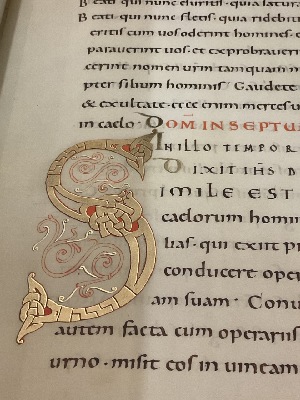 Beati qui nunc esuritis. quia satura
Beati qui nunc fletis. quia ridebitis
eritis cum uos oderint homines. &
parauerint uos. et exprobrauerint
cerint nomen urm tamquam m
pter filium hominis. Gaudete
& exultate. ecce enim merces u
in caelo. DOM IN SEPTU
IN ILLO TEMPOR
DIXIT IHS D
SIMILE EST
caelorum homin
lias. qui exiit pr
conducere oper
am suam. Conu
autem facta cum operariis
urno. misit eos in uineam